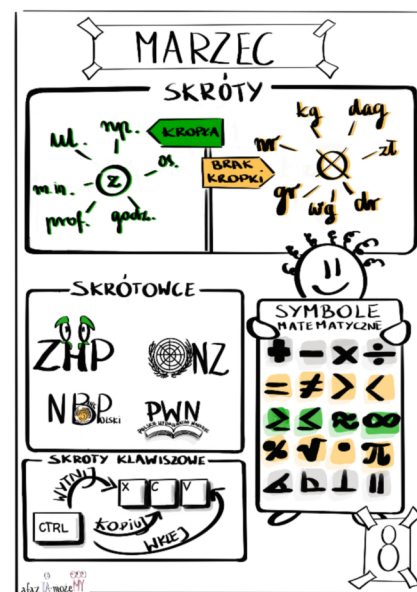 MARZEC
SKRÓTY
ul.
np.
os.
m.in.
prof.
godz.
z
KROPKA
BRAK
KROPKI
kg
dag
nr
zł
gr
wg
dr
SKRÓTOWCE
ZHP
ONZ
NBP
POLSKI
PWN
SYMBOLE
MATEMATYCZNE
+ − × ÷
= ≠ > <
≥ ≤ ≈ ∞
% √ ° π
∡ b ⊥ ||
SKRÓTY KLAWISZOWE
WYTNIJ
X C V
CTRL
KOPIUJ
WKLEJ
8